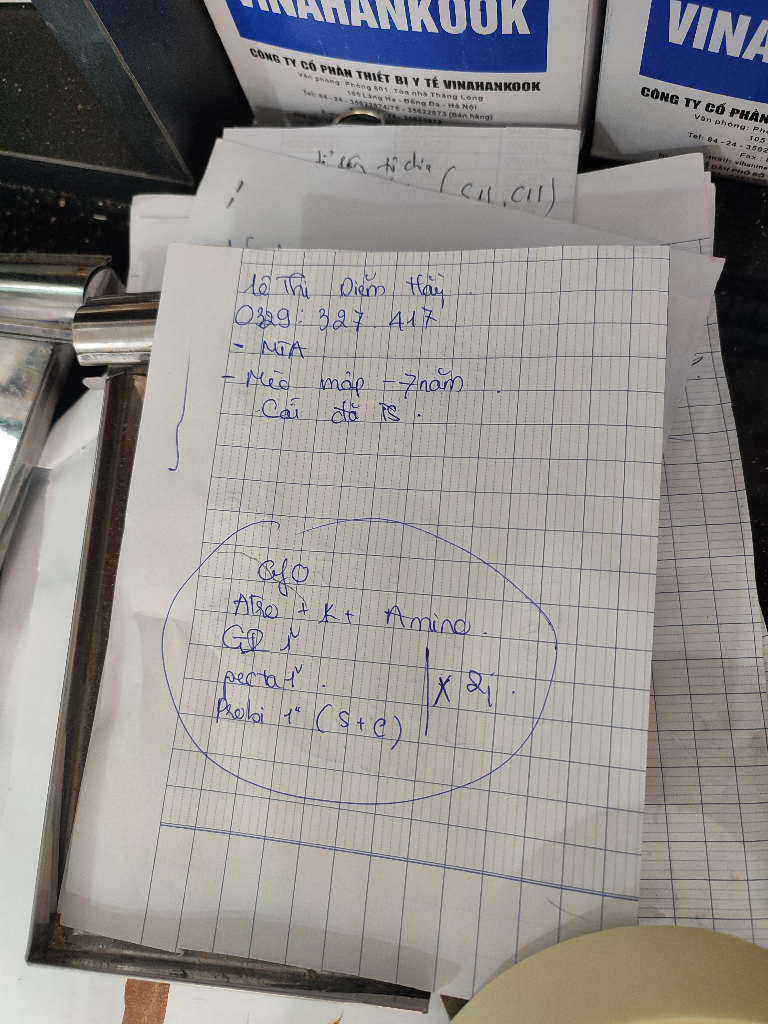 VINAHANKOOK
CÔNG TY CỔ PHẦN THIẾT BỊ Y TẾ VINAHANKOOK
Văn phòng: Phòng 601, Tòa nhà Thăng Long
105 Láng Hạ - Đống Đa - Hà Nội
Tel: 84 - 24 - 35622874/75 - 35622873 (Bán hàng)
VINA
CÔNG TY CỔ PHẦN
Văn phòng: Phò
105
Tel: 84 - 24 - 3562
Fax :
(C11, C11)
Lê Thị Diễm Hằng
0329: 327 417
- MTA
- Mèo mập - 7 năm
Cái đã TS.
Atro + K + Amino.
GD 1v
pecta 1v.
Probi 1" (S + C)
x 2j.